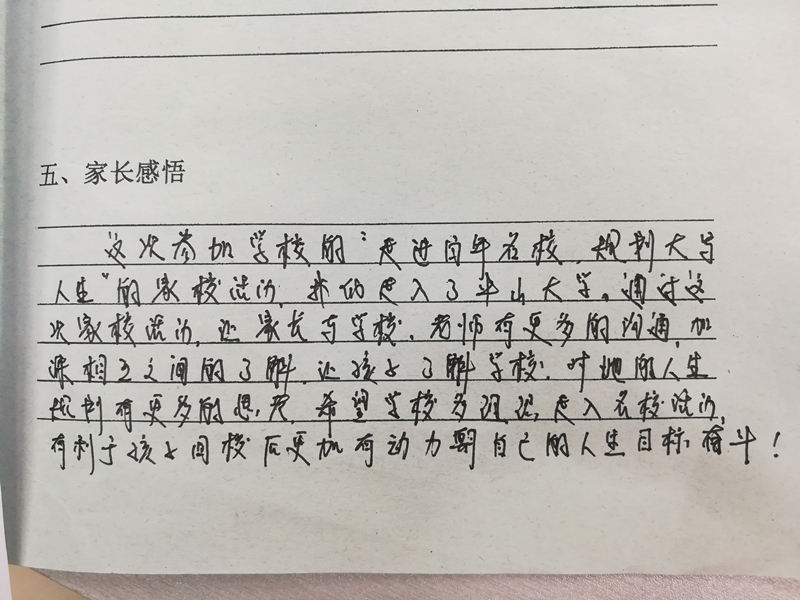 五、家长感悟
这次参加学校的“走进百年名校，规划大写
人生”的家校活动，我们走入了中山大学。通过这
次家校活动，让家长与学校、老师有更多的沟通，加
深相互之间的了解，让孩子了解学校，对他的人生
规划有更多的思考，希望学校多组织走入名校活动，
有利于孩子回校后更加有动力朝自己的人生目标奋斗！